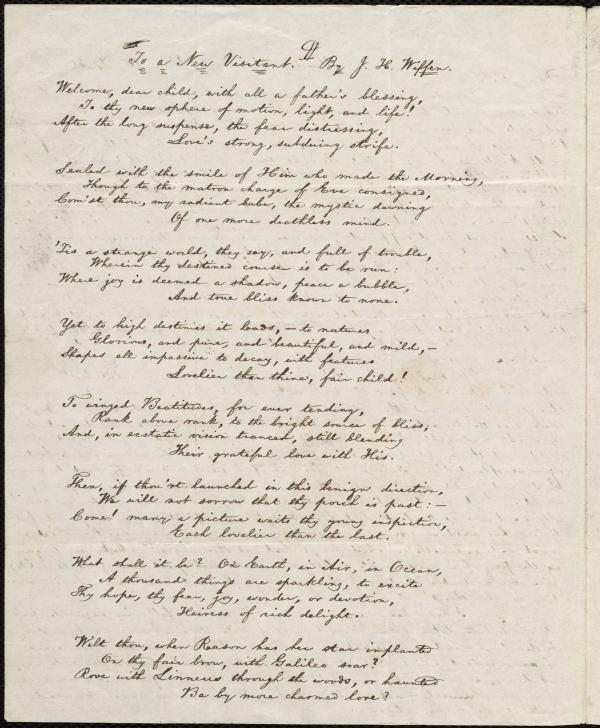 To a New Visitant. By J. H. Wiffen.
Welcome, dear child, with all a father's blessing,
To thy new sphere of motion, light, and life!
After the long suspense, the fear distressing,
Love's strong, subduing strife.
Sealed with the smile of Him who made the Morning,
Though to the matron charge of Eve consigned,
Com'st thou, my radiant babe, the mystic dawning
Of one more deathless mind.
'Tis a strange world, they say, and full of trouble,
Wherein thy destined course is to be run:
Where joy is deemed a shadow, peace a bubble,
And true bliss known to none.
Yet to high destinies it leads, – to natures
Glorious, and pure, and beautiful, and mild, –
Shapes all impassive to decay, with features
Lovelier than thine, fair child!
To winged Beatitudes, for ever tending,
Rank above rank, to the bright source of bliss,
And, in ecstatic vision tranced, still blending
Their grateful love with His.
Then, if thou'rt launched in this benign direction,
We will not sorrow that thy porch is past: –
Come! many a picture waits thy young inspection,
Each lovelier than the last.
What shall it be? On Earth, in Air, in Ocean,
A thousand things are sparkling, to excite
Thy hope, thy fear, joy, wonder, or devotion,
Heiress of rich delight.
Wilt thou, when Reason has her star implanted
On thy fair brow, with Galileo soar?
Rove with Linneus through the woods, or haunted
Be by more charmed lore?